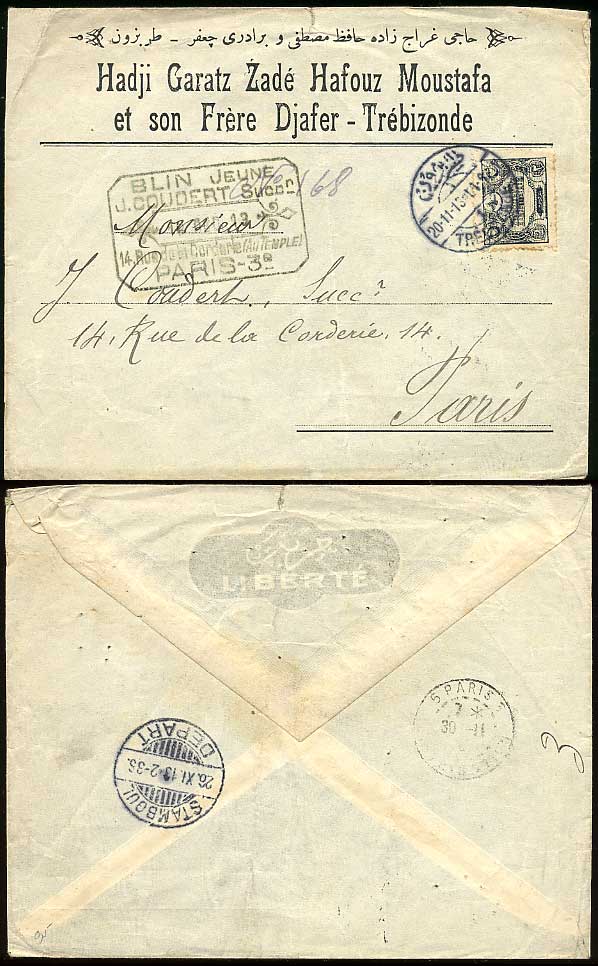 حاجی غراج زاده حافظ مصطفی و برادری جعفر - طربزون
Hadji Garatz Zadé Hafouz Moustafa
et son Frère Djafer - Trébizonde
BLIN JEUNE
J. COUDERT Succr
14, Rue de la Corderie (AU TEMPLE)
PARIS-3e
168
20-11-13
Monsieur
J. Coudert, Succr
14, Rue de la Corderie, 14.
Paris
حریت
LIBERTÉ
5 PARIS
30 -11
3
STAMBOUL
26. XI. 13-2-3S.
DEPART